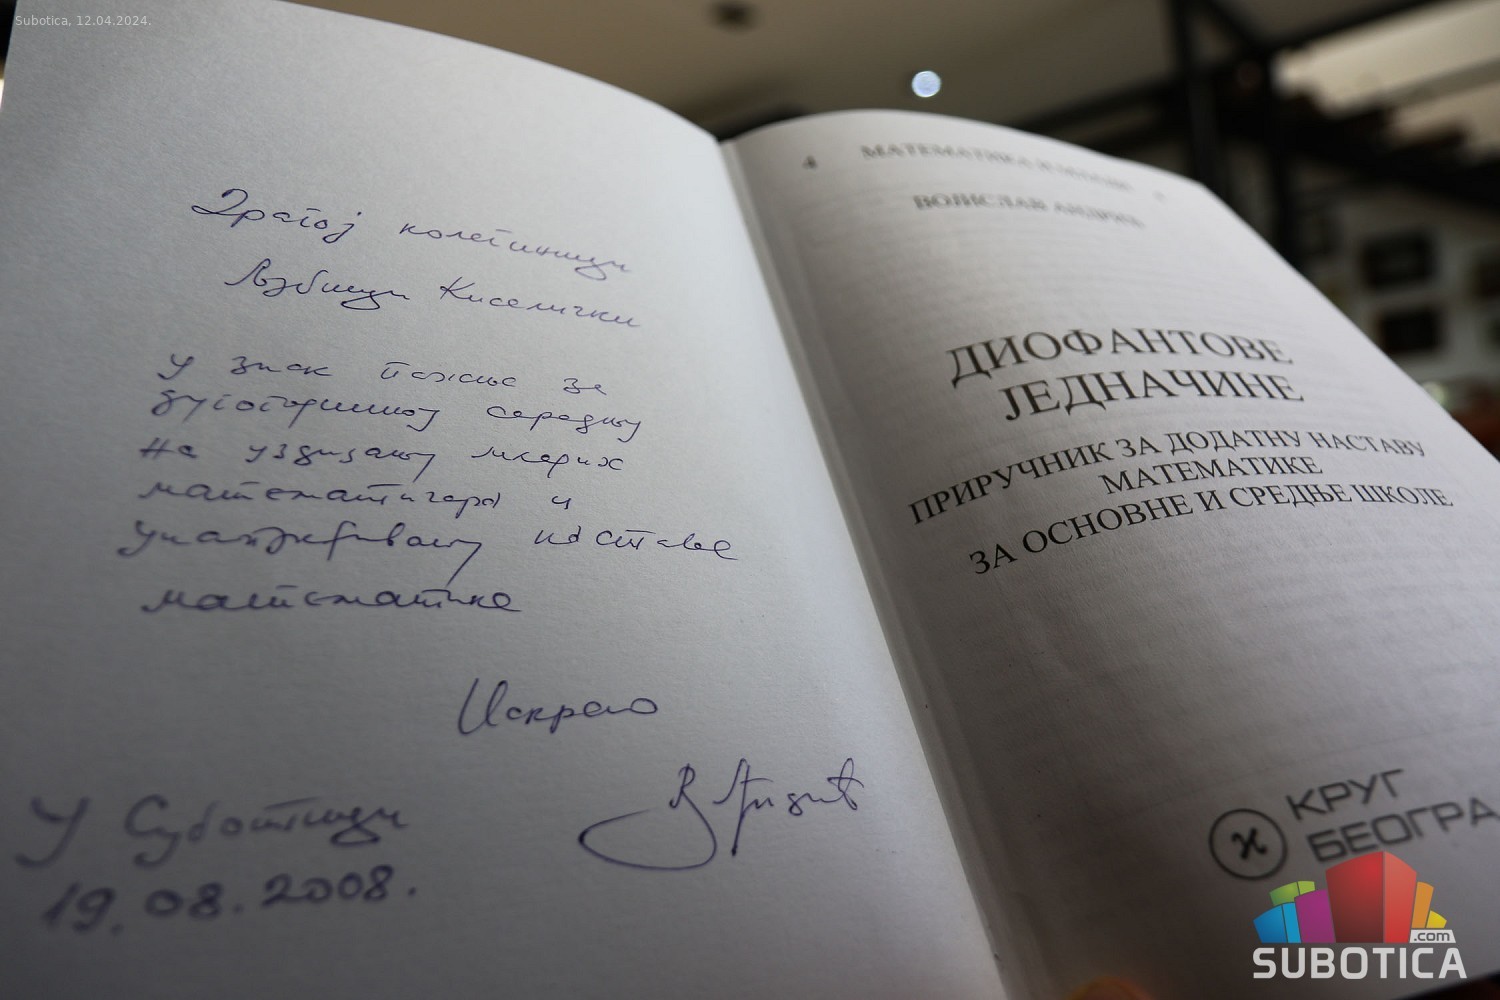 Subotica, 12.04.2024.
Драгој колегиници
Љубици Киселички
У знак пажње за
дугогодишњу сарадњу
на уздизању младих
математичара и
унапређивању наставе
математике
Искрено
В Андрић
У Суботици
19.08.2008.
4 МАТЕМАТИКА
ВОЈИСЛАВ АНДРИЋ
ДИОФАНТОВЕ
ЈЕДНАЧИНЕ
ПРИРУЧНИК ЗА ДОДАТНУ НАСТАВУ
МАТЕМАТИКЕ
ЗА ОСНОВНЕ И СРЕДЊЕ ШКОЛЕ
КРУГ
БЕОГРА
.com
SUBOTICA